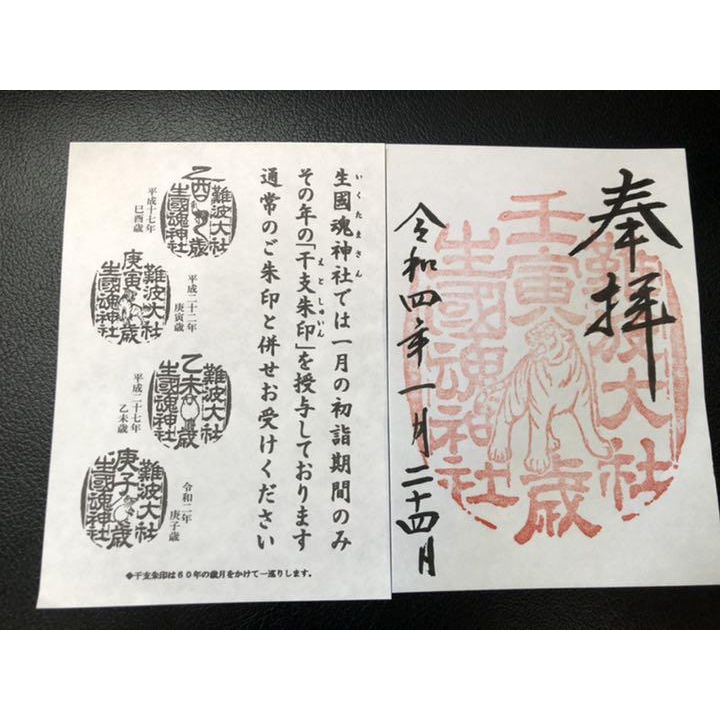 奉拝
難波大社
壬寅歳
生國魂神社
令和四年一月二十四月
いくたまさん
生國魂神社では一月の初詣期間のみ
えとしゅいん
その年の「干支朱印」を授与しております
通常のご朱印と併せお受けください
難波大社
乙酉歳
生國魂神社
平成十七年
巳酉歳
平成二十二年
庚寅歳
難波大社
庚寅歳
生國魂神社
難波大社
乙未歳
生國魂神社
平成二十七年
乙未歳
令和二年
庚子歳
難波大社
庚子歳
生國魂神社
◆干支朱印は60年の歳月をかけて一巡りします。